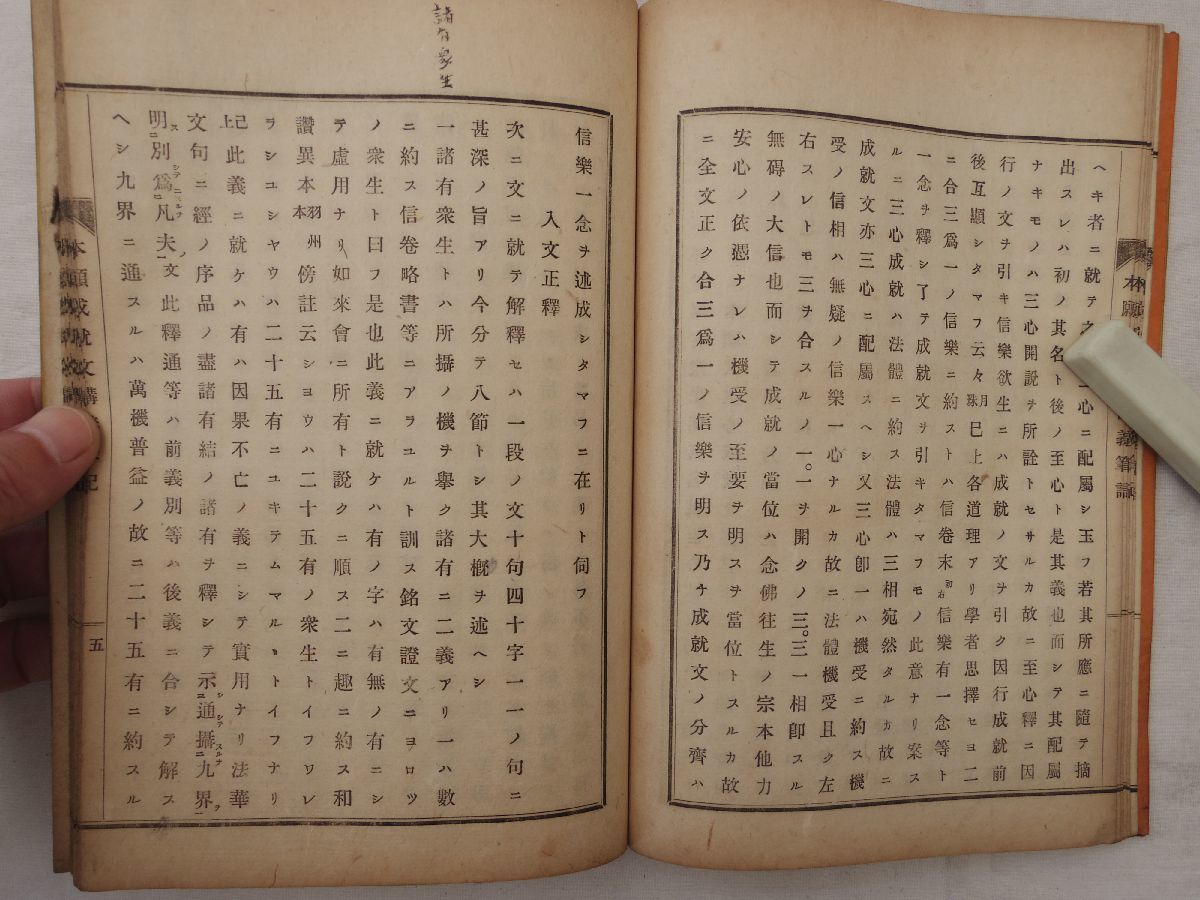 ヘキ者ニ就テ之 心ニ配屬シ玉フ若其所應ニ隨テ摘
出スレハ初ノ其名ト後ノ至心ト是其義也而シテ其配屬
ナキモノハ三心開説ヲ所詮トセサルカ故ニ至心釋ニ因
行ノ文ヲ引キ信樂欲生ニハ成就ノ文ヲ引ク因行成就前
後互顯シタマフ云々月珠巳上各道理アリ學者思擇セヨ二
ニ合三爲一ノ信樂ニ約ストハ信卷末初右信樂有一念等ト
一念ヲ釋シ了テ成就文ヲ引キタマフモノ此意ナリ案ス
ルニ三心成就ハ法體ニ約ス法體ハ三相宛然タルカ故ニ
成就文亦三心ニ配屬スヘシ又三心卽一ハ機受ニ約ス機
受ノ信相ハ無疑ノ信樂一心ナルカ故ニ法體機受且ク左
右スレトモ三ヲ合スルノ一。一ヲ開クノ三。三一相卽スル
無碍ノ大信也而シテ成就ノ當位ハ念佛往生ノ宗本他力
安心ノ依憑ナレハ機受ノ至要ヲ明スヲ當位トスルカ故
ニ全文正ク合三爲一ノ信樂ヲ明ス乃チ成就文ノ分齊ハ
諸有衆生
信樂一念ヲ述成シタマフニ在リト伺フ
入文正釋
次ニ文ニ就テ解釋セハ一段ノ文十句四十字一一ノ句ニ
甚深ノ旨アリ今分テ八節トシ其大槪ヲ述ヘシ
一諸有衆生トハ所攝ノ機ヲ擧ク諸有ニ二義アリ一ハ數
ニ約ス信卷略書等ニアラユルト訓ス銘文證文ニヨロツ
ノ衆生ト曰フ是也此義ニ就ケハ有ノ字ハ有無ノ有ニシ
テ虛用ナリ如來會ニ所有ト説クニ順ス二ニ趣ニ約ス和
讃異本羽州本傍註云シヨウハ二十五有ノ衆生トイフワレ
ラシユシヤウハ二十五有ニユキテムマルヽトイフナリ
已上此義ニ就ケハ有ハ因果不亡ノ義ニシテ實用ナリ法華
文句ニ經ノ序品ノ盡諸有結ノ諸有ヲ釋シテ示通攝九界
明別爲凡夫文此釋通等ハ前義別等ハ後義ニ合シテ解ス
ヘシ九界ニ通スルハ萬機普益ノ故ニ二十五有ニ約スル
本願成就文講
記
五